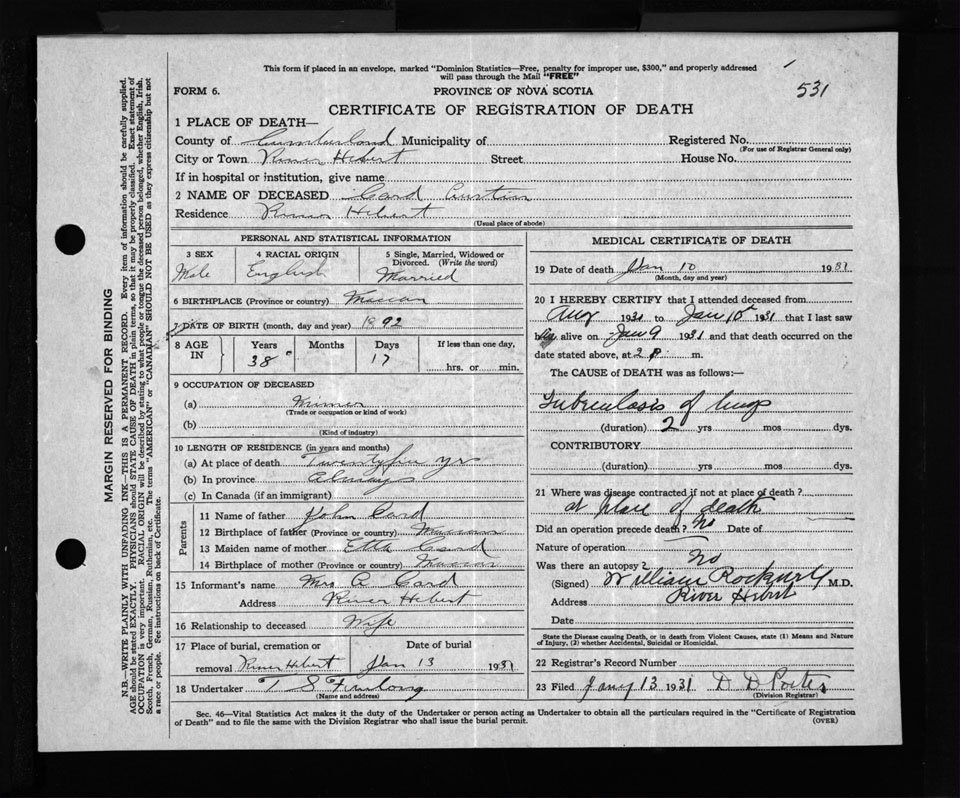 This form if placed in an envelope, marked "Dominion Statistics—Free, penalty for improper use, $300," and properly addressed
will pass through the Mail "FREE"
531
FORM 6.
PROVINCE OF NOVA SCOTIA
CERTIFICATE OF REGISTRATION OF DEATH
1 PLACE OF DEATH—
County of Cumberland Municipality of Registered No.
(For use of Registrar General only)
City or Town River Hebert Street House No.
If in hospital or institution, give name
2 NAME OF DECEASED Card Austin
Residence River Hebert
(Usual place of abode)
PERSONAL AND STATISTICAL INFORMATION
3 SEX
Male
4 RACIAL ORIGIN
English
5 Single, Married, Widowed or
Divorced. (Write the word)
Married
6 BIRTHPLACE (Province or country) Maccan
7 DATE OF BIRTH (month, day and year) 1892
8 AGE IN Years Months Days If less than one day,
38 17 hrs. or min.
9 OCCUPATION OF DECEASED
(a) Miner
(Trade or occupation or kind of work)
(b)
(Kind of industry)
10 LENGTH OF RESIDENCE (in years and months)
(a) At place of death yr
(b) In province always
(c) In Canada (if an immigrant)
Parents
11 Name of father John Card
12 Birthplace of father (Province or country) Maccan
13 Maiden name of mother Etta Card
14 Birthplace of mother (Province or country) Maccan
15 Informant's name Mrs A Card
Address River Hebert
16 Relationship to deceased Wife
17 Place of burial, cremation or Date of burial
removal River Hebert Jan 13 1931
18 Undertaker T S Furlong
(Name and address)
MEDICAL CERTIFICATE OF DEATH
19 Date of death Jan 10 1931
(Month, day and year)
20 I HEREBY CERTIFY that I attended deceased from
Aug to Jan 10 1931 that I last saw
alive on Jan 9 1931 and that death occurred on the
date stated above, at 2 P. m.
The CAUSE of DEATH was as follows:—
Tuberculosis of lungs
(duration) 2 yrs mos dys.
CONTRIBUTORY
(duration) yrs mos dys.
21 Where was disease contracted if not at place of death?
at place of death
Did an operation precede death? No Date of
Nature of operation
Was there an autopsy? No
(Signed) William Rockwell M.D.
Address River Hebert
Date
State the Disease causing Death, or in death from Violent Causes, state (1) Means and Nature
of Injury, (2) whether Accidental, Suicidal or Homicidal.
22 Registrar's Record Number
23 Filed Jany 13 1931 D D Porter
(Division Registrar)
Sec. 46—Vital Statistics Act makes it the duty of the Undertaker or person acting as Undertaker to obtain all the particulars required in the "Certificate of Registration
of Death" and to file the same with the Division Registrar who shall issue the burial permit.
(OVER)
MARGIN RESERVED FOR BINDING
N.B.—WRITE PLAINLY WITH UNFADING INK—THIS IS A PERMANENT RECORD. Every item of information should be carefully supplied.
AGE should be stated EXACTLY. PHYSICIANS should STATE CAUSE OF DEATH in plain terms, so that it may be properly classified. Exact statement of
OCCUPATION is very important. RACIAL ORIGIN will be described by stating to what people or tongue the deceased person belonged, whether English, Irish,
Scotch, French, German, Russian, Ruthenian, etc. The terms "AMERICAN" or "CANADIAN" SHOULD NOT BE USED as they express citizenship but not
a race or people. See instructions on back of Certificate.